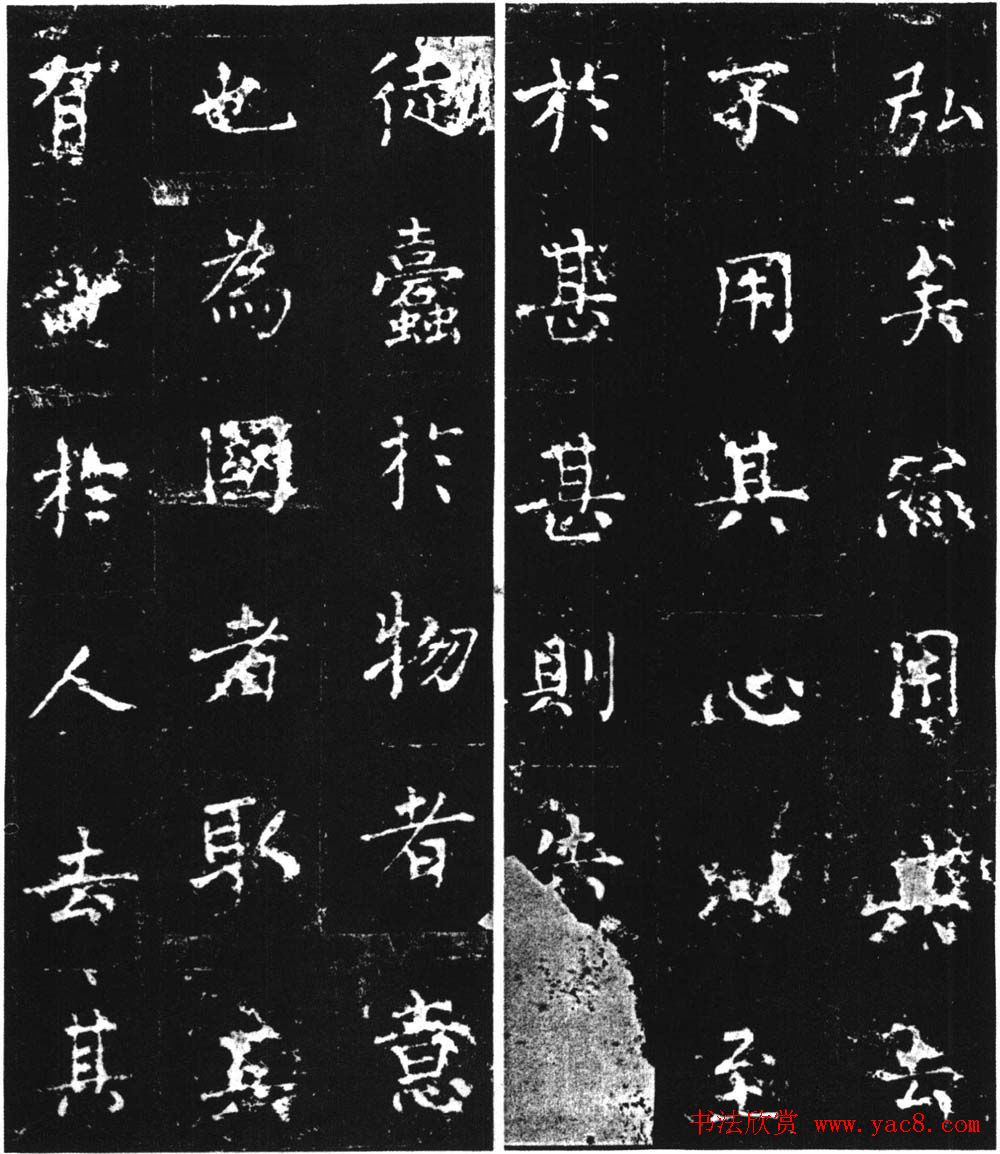 弘矣用去
不用其心以至
於甚甚則
徒蠹於物者意
也為國者取
有於人去其
书法欣赏 www.yac8.com